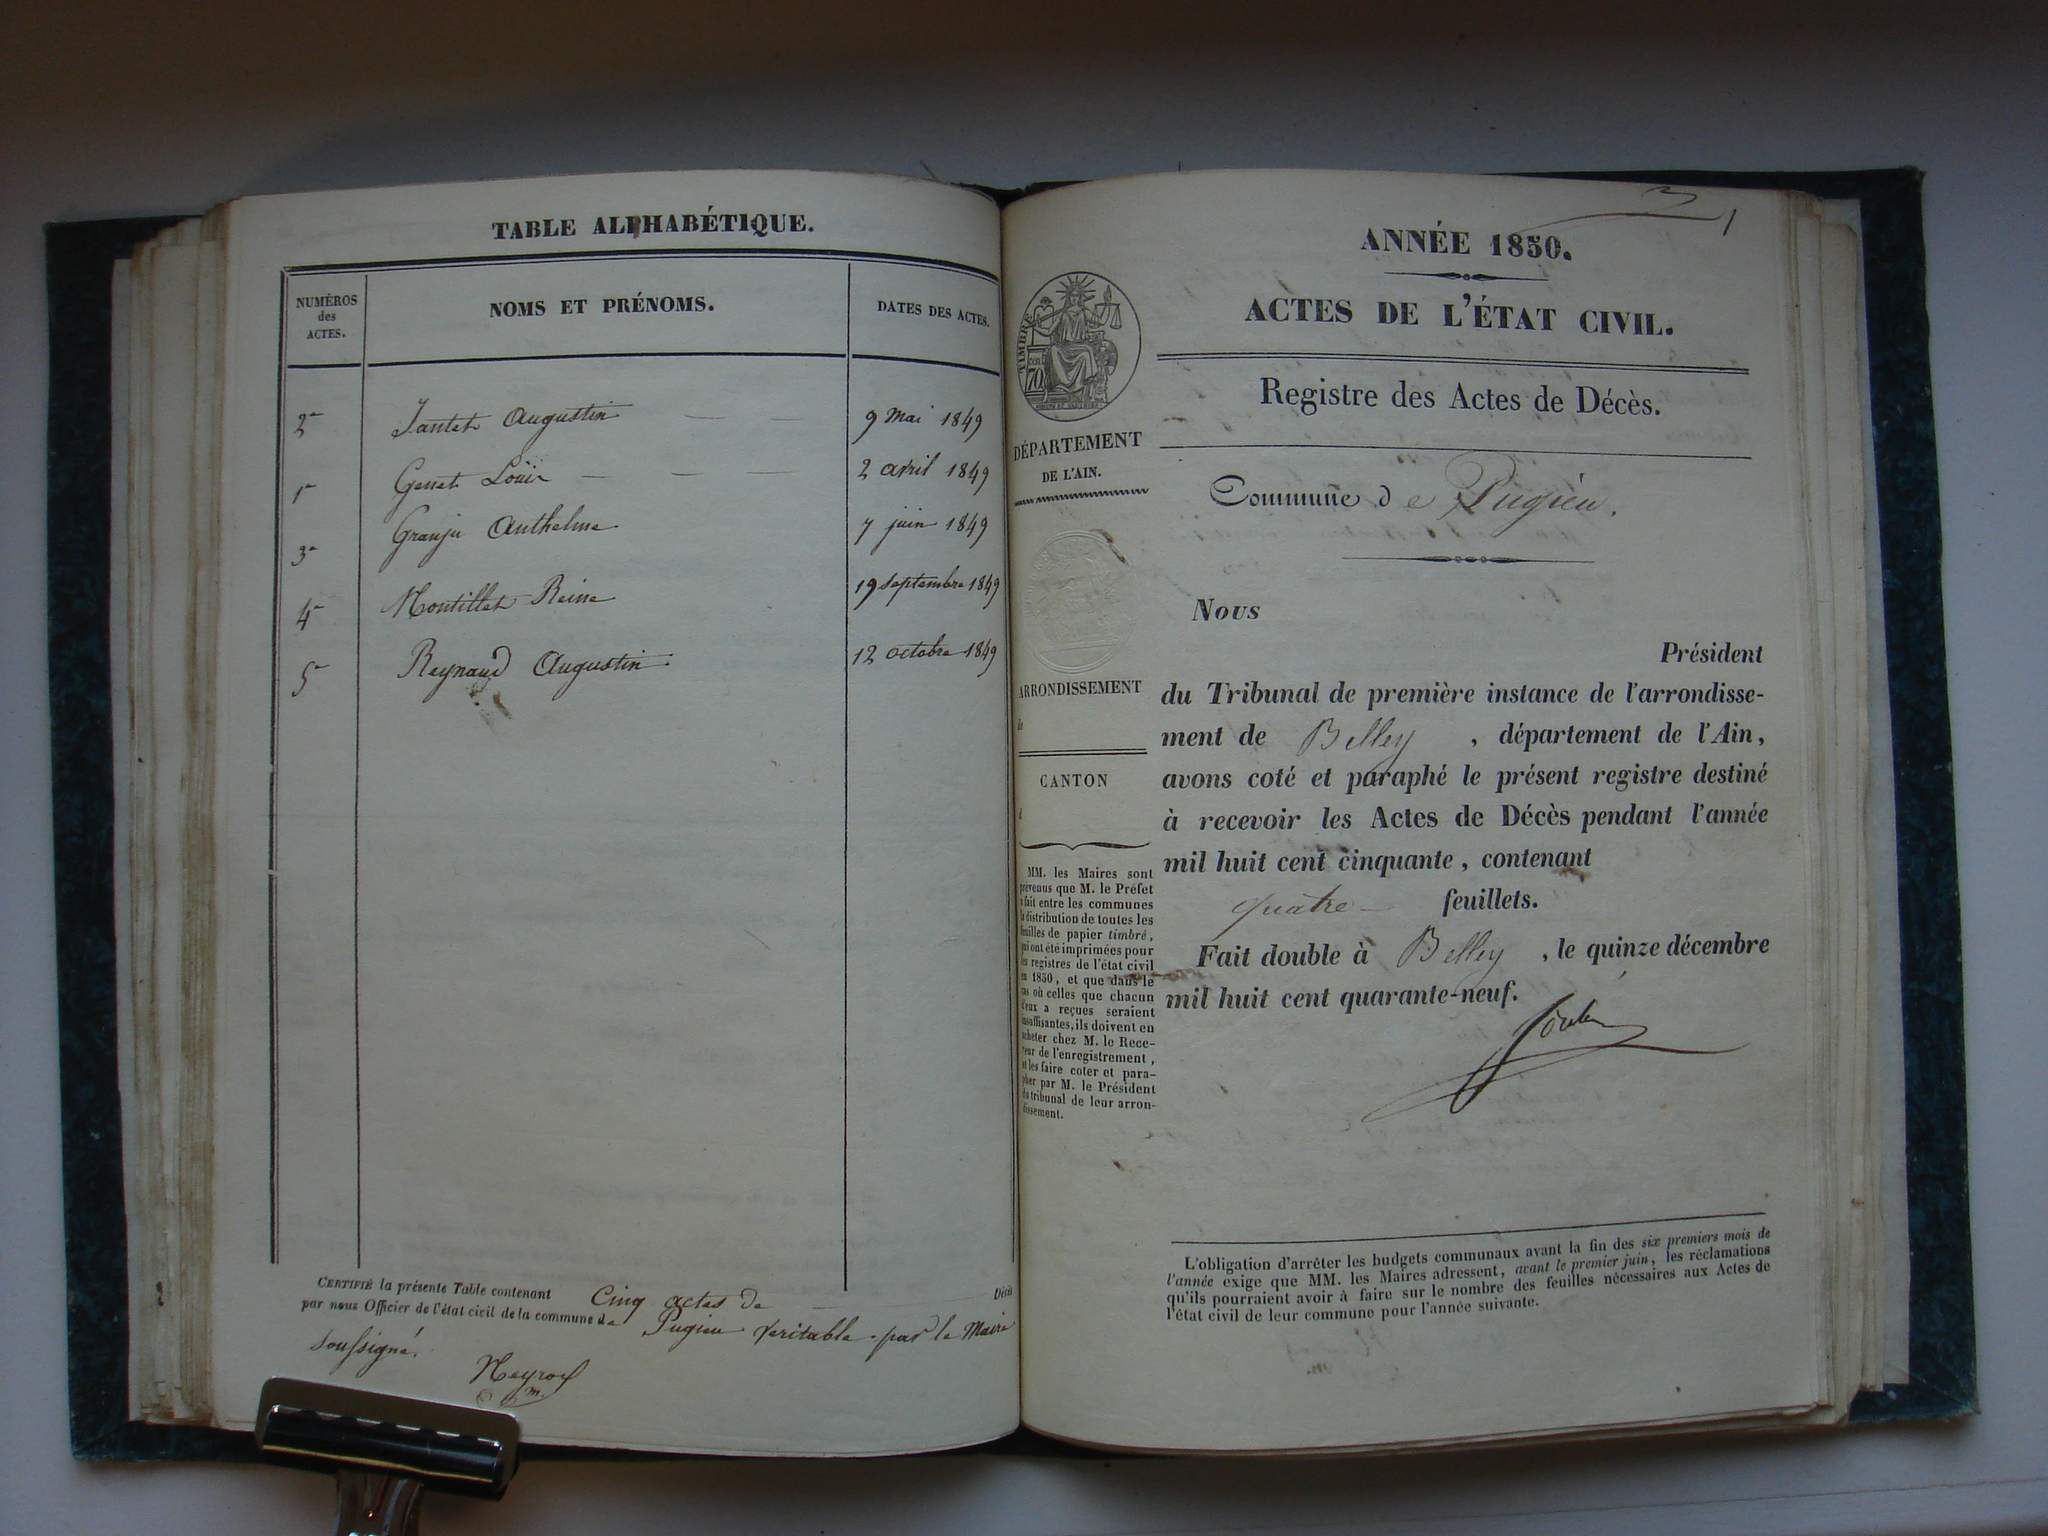 TABLE ALPHABÉTIQUE.
NUMÉROS
des
ACTES.
NOMS ET PRÉNOMS.
DATES DES ACTES.
2 Jantet Augustin 9 mai 1849
1 Genet Loüis 2 avril 1849
3 Granju Anthelme 7 juin 1849
4 Montillet Reine 19 septembre 1849
5 Reynaud Augustin 12 octobre 1849
CERTIFIÉ la présente Table contenant Cinq actes de Décès
par nous Officier de l'état civil de la commune de Pugieu veritable par le Maire
soussigné.
m.
1
ANNÉE 1850.
ACTES DE L'ÉTAT CIVIL.
Registre des Actes de Décès.
Commune de Pugieu.
TIMBRE
70
DÉPARTEMENT
DE L'AIN.
ARRONDISSEMENT
de
CANTON
d
MM. les Maires sont
prévenus que M. le Préfet
a fait entre les communes
la distribution de toutes les
feuilles de papier timbré,
qui ont été imprimées pour
les registres de l'état civil
en 1850, et que dans le
cas où celles que chacun
d'eux a reçues seraient
insuffisantes, ils doivent en
acheter chez M. le Rece-
veur de l'enregistrement,
et les faire coter et para-
pher par M. le Président
du tribunal de leur arron-
dissement.
Nous
Président
du Tribunal de première instance de l'arrondisse-
ment de Belley, département de l'Ain,
avons coté et paraphé le présent registre destiné
à recevoir les Actes de Décès pendant l'année
mil huit cent cinquante, contenant
quatre feuillets.
Fait double à Belley, le quinze décembre
mil huit cent quarante-neuf.
L'obligation d'arrêter les budgets communaux avant la fin des six premiers mois de
l'année exige que MM. les Maires adressent, avant le premier juin, les réclamations
qu'ils pourraient avoir à faire sur le nombre des feuilles nécessaires aux Actes de
l'état civil de leur commune pour l'année suivante.